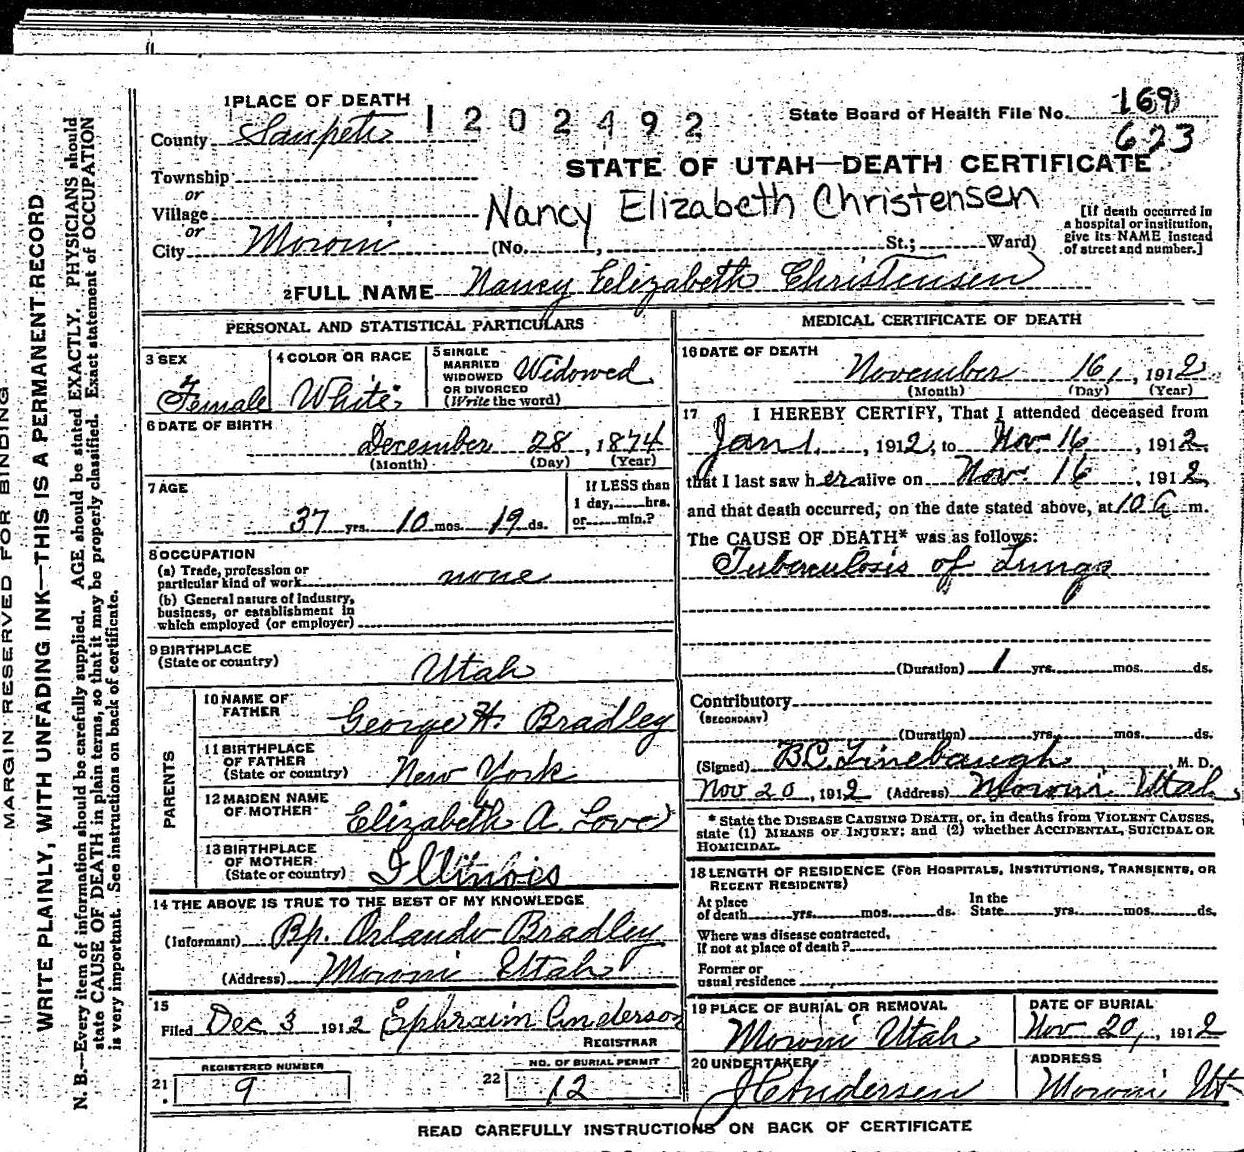 1 PLACE OF DEATH
1202492
State Board of Health File No. 169
623
County Sanpete
STATE OF UTAH—DEATH CERTIFICATE
Township
or
Village
Nancy Elizabeth Christensen
or
City Moroni (No. , St.; Ward)
[If death occurred in
a hospital or institution,
give its NAME instead
of street and number.]
2 FULL NAME Nancy Elizabeth Christensen
PERSONAL AND STATISTICAL PARTICULARS
3 SEX
Female
4 COLOR OR RACE
White
5 SINGLE
MARRIED
WIDOWED
OR DIVORCED
(Write the word)
Widowed
6 DATE OF BIRTH
December 28, 1874
(Month) (Day) (Year)
7 AGE
37 yrs. 10 mos. 19 ds.
If LESS than
1 day, hrs.
or min.?
8 OCCUPATION
(a) Trade, profession or
particular kind of work none
(b) General nature of industry,
business, or establishment in
which employed (or employer)
9 BIRTHPLACE
(State or country)
Utah
PARENTS
10 NAME OF
FATHER
George H. Bradley
11 BIRTHPLACE
OF FATHER
(State or country)
New York
12 MAIDEN NAME
OF MOTHER
Elizabeth A. Love
13 BIRTHPLACE
OF MOTHER
(State or country)
Illinois
14 THE ABOVE IS TRUE TO THE BEST OF MY KNOWLEDGE
(Informant) Bp. Orlando Bradley
(Address) Moroni Utah
15
Filed Dec 3 1912 Ephraim Anderson
REGISTRAR
21 REGISTERED NUMBER
9
22 NO. OF BURIAL PERMIT
12
MEDICAL CERTIFICATE OF DEATH
16 DATE OF DEATH
November 16, 1912
(Month) (Day) (Year)
17 I HEREBY CERTIFY, That I attended deceased from
Jan 1, 1912, to Nov 16, 1912,
that I last saw her alive on Nov. 16, 1912,
and that death occurred, on the date stated above, at 10 a m.
The CAUSE OF DEATH* was as follows:
Tuberculosis of Lungs
(Duration) 1 yrs. mos. ds.
Contributory
(SECONDARY)
(Duration) yrs. mos. ds.
(Signed) B.C. Linebaugh, M. D.
Nov 20, 1912 (Address) Moroni Utah
* State the DISEASE CAUSING DEATH, or, in deaths from VIOLENT CAUSES,
state (1) MEANS OF INJURY; and (2) whether ACCIDENTAL, SUICIDAL OR
HOMICIDAL.
18 LENGTH OF RESIDENCE (FOR HOSPITALS, INSTITUTIONS, TRANSIENTS, OR
RECENT RESIDENTS)
At place
of death yrs. mos. ds.
In the
State yrs. mos. ds.
Where was disease contracted,
If not at place of death?
Former or
usual residence
19 PLACE OF BURIAL OR REMOVAL
Moroni Utah
DATE OF BURIAL
Nov 20, 1912
20 UNDERTAKER
J C Andersen
ADDRESS
Moroni Ut
READ CAREFULLY INSTRUCTIONS ON BACK OF CERTIFICATE
MARGIN RESERVED FOR BINDING
WRITE PLAINLY, WITH UNFADING INK—THIS IS A PERMANENT RECORD
N. B.—Every item of information should be carefully supplied. AGE should be stated EXACTLY. PHYSICIANS should
state CAUSE OF DEATH in plain terms, so that it may be properly classified. Exact statement of OCCUPATION
is very important. See instructions on back of certificate.